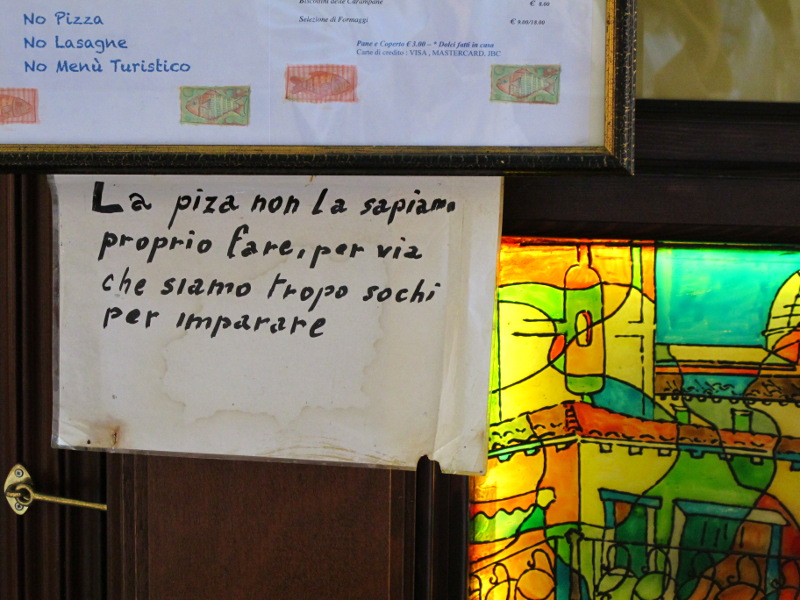 No Pizza
No Lasagne
No Menù Turistico
€ 8.00
Selezione di Formaggi € 9.00/18.00
Pane e Coperto € 3.00 – * Dolci fatti in casa
Carte di credito : VISA , MASTERCARD, JBC
La piza non la sapiamo
proprio fare, per via
che siamo tropo sochi
per imparare